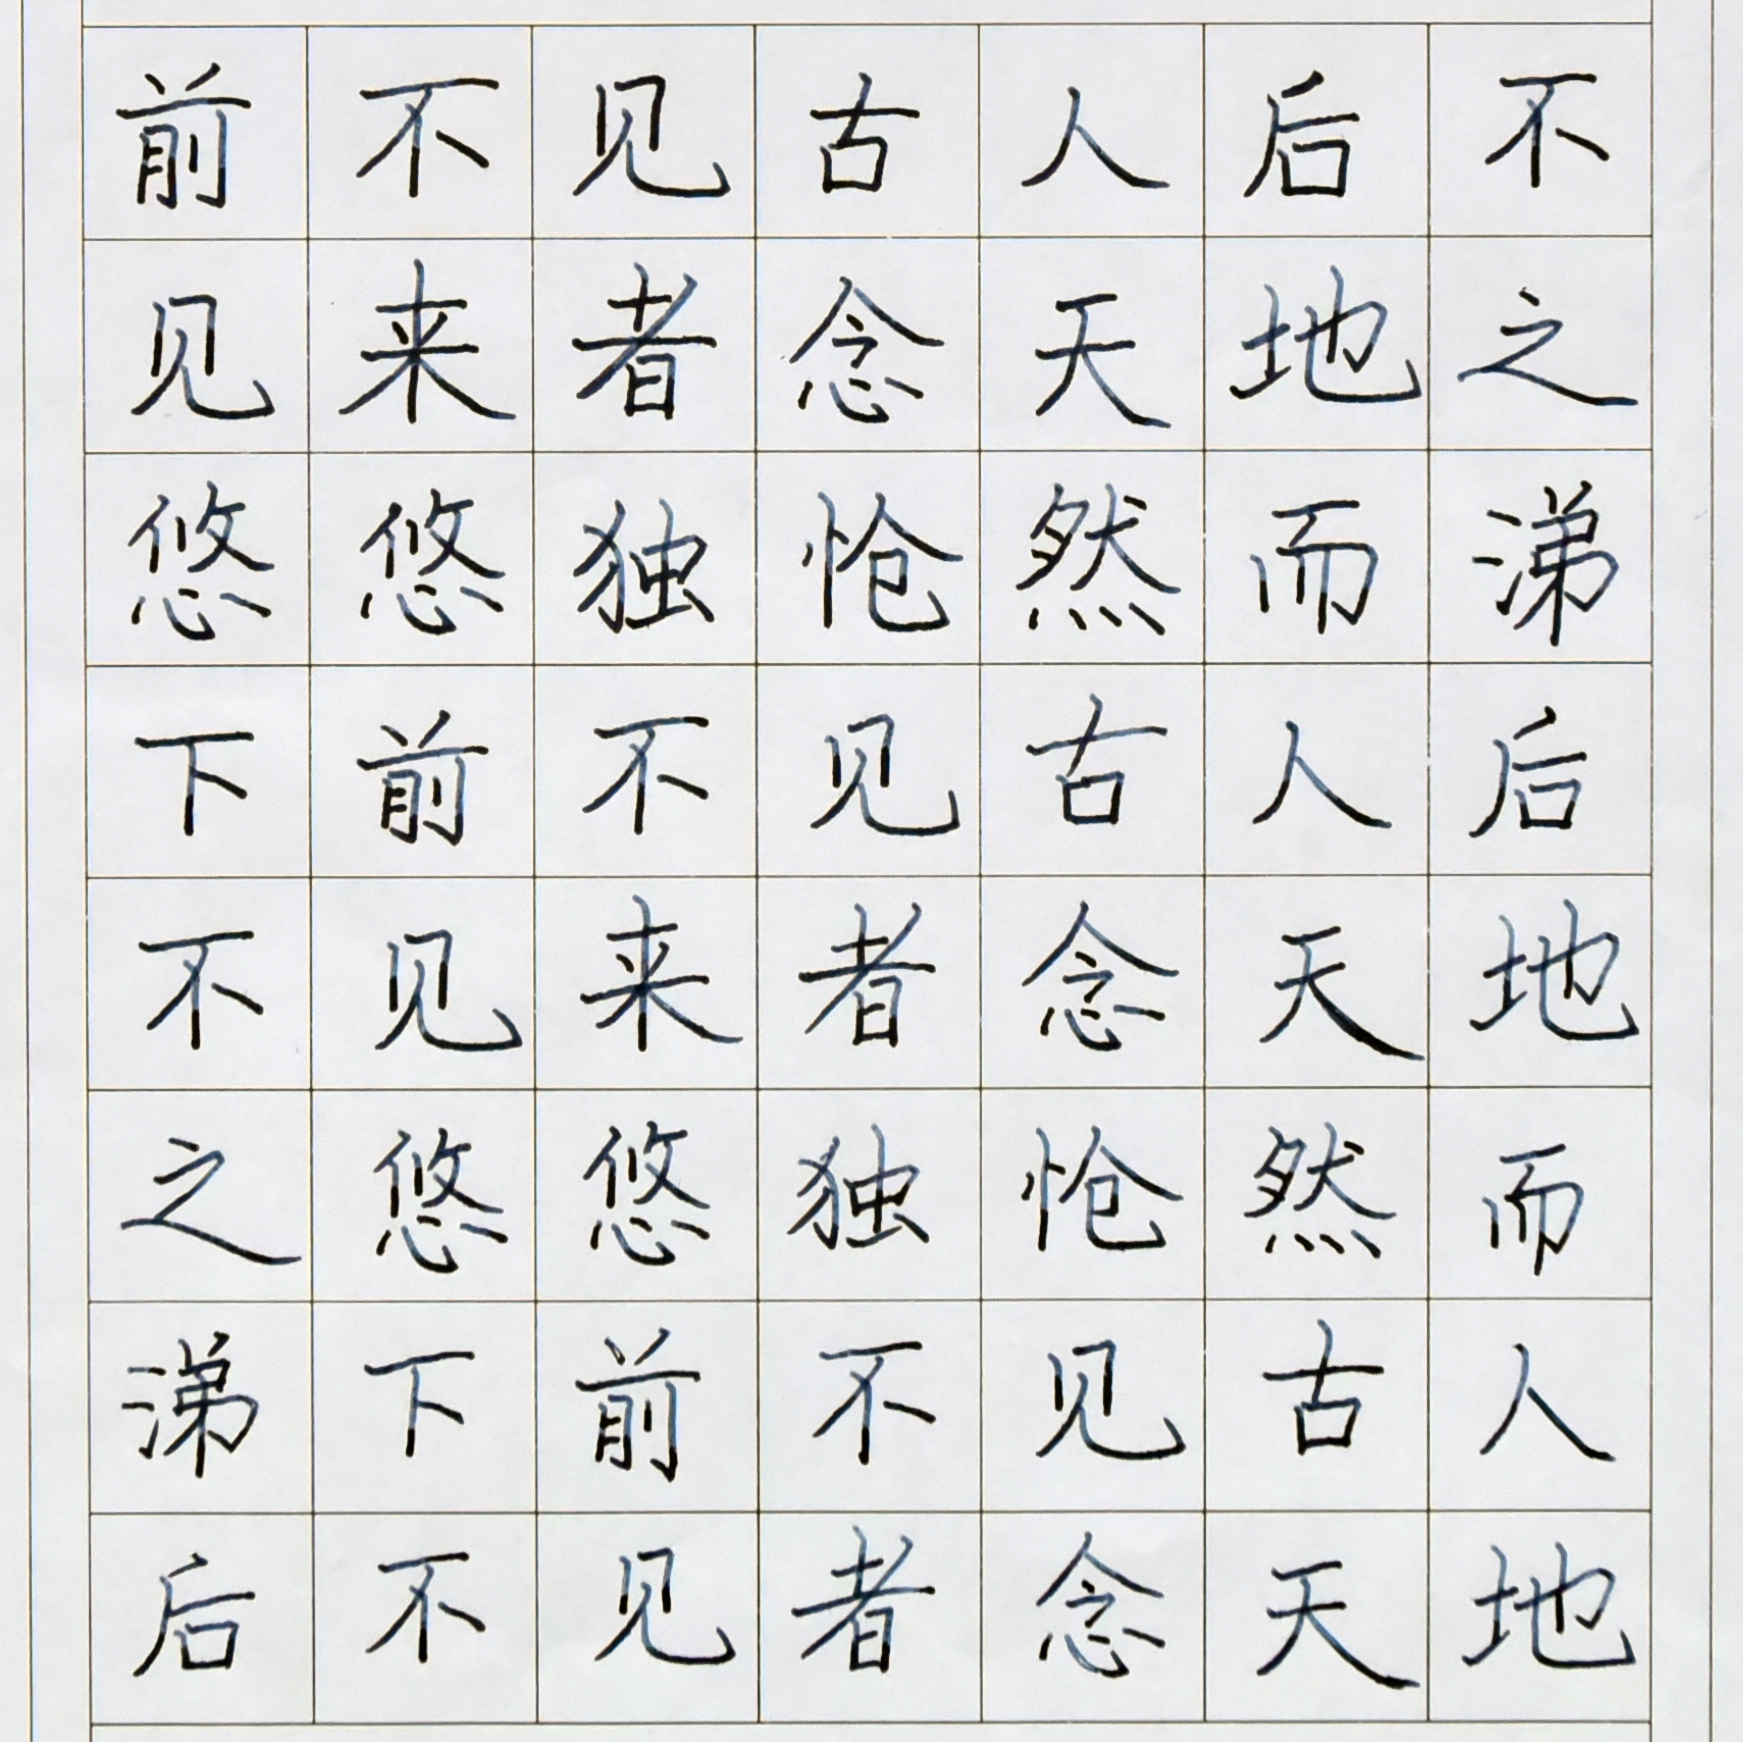 前不见古人后不
见来者念天地之
悠悠独怆然而涕
下前不见古人后
不见来者念天地
之悠悠独怆然而
涕下前不见古人
后不见者念天地